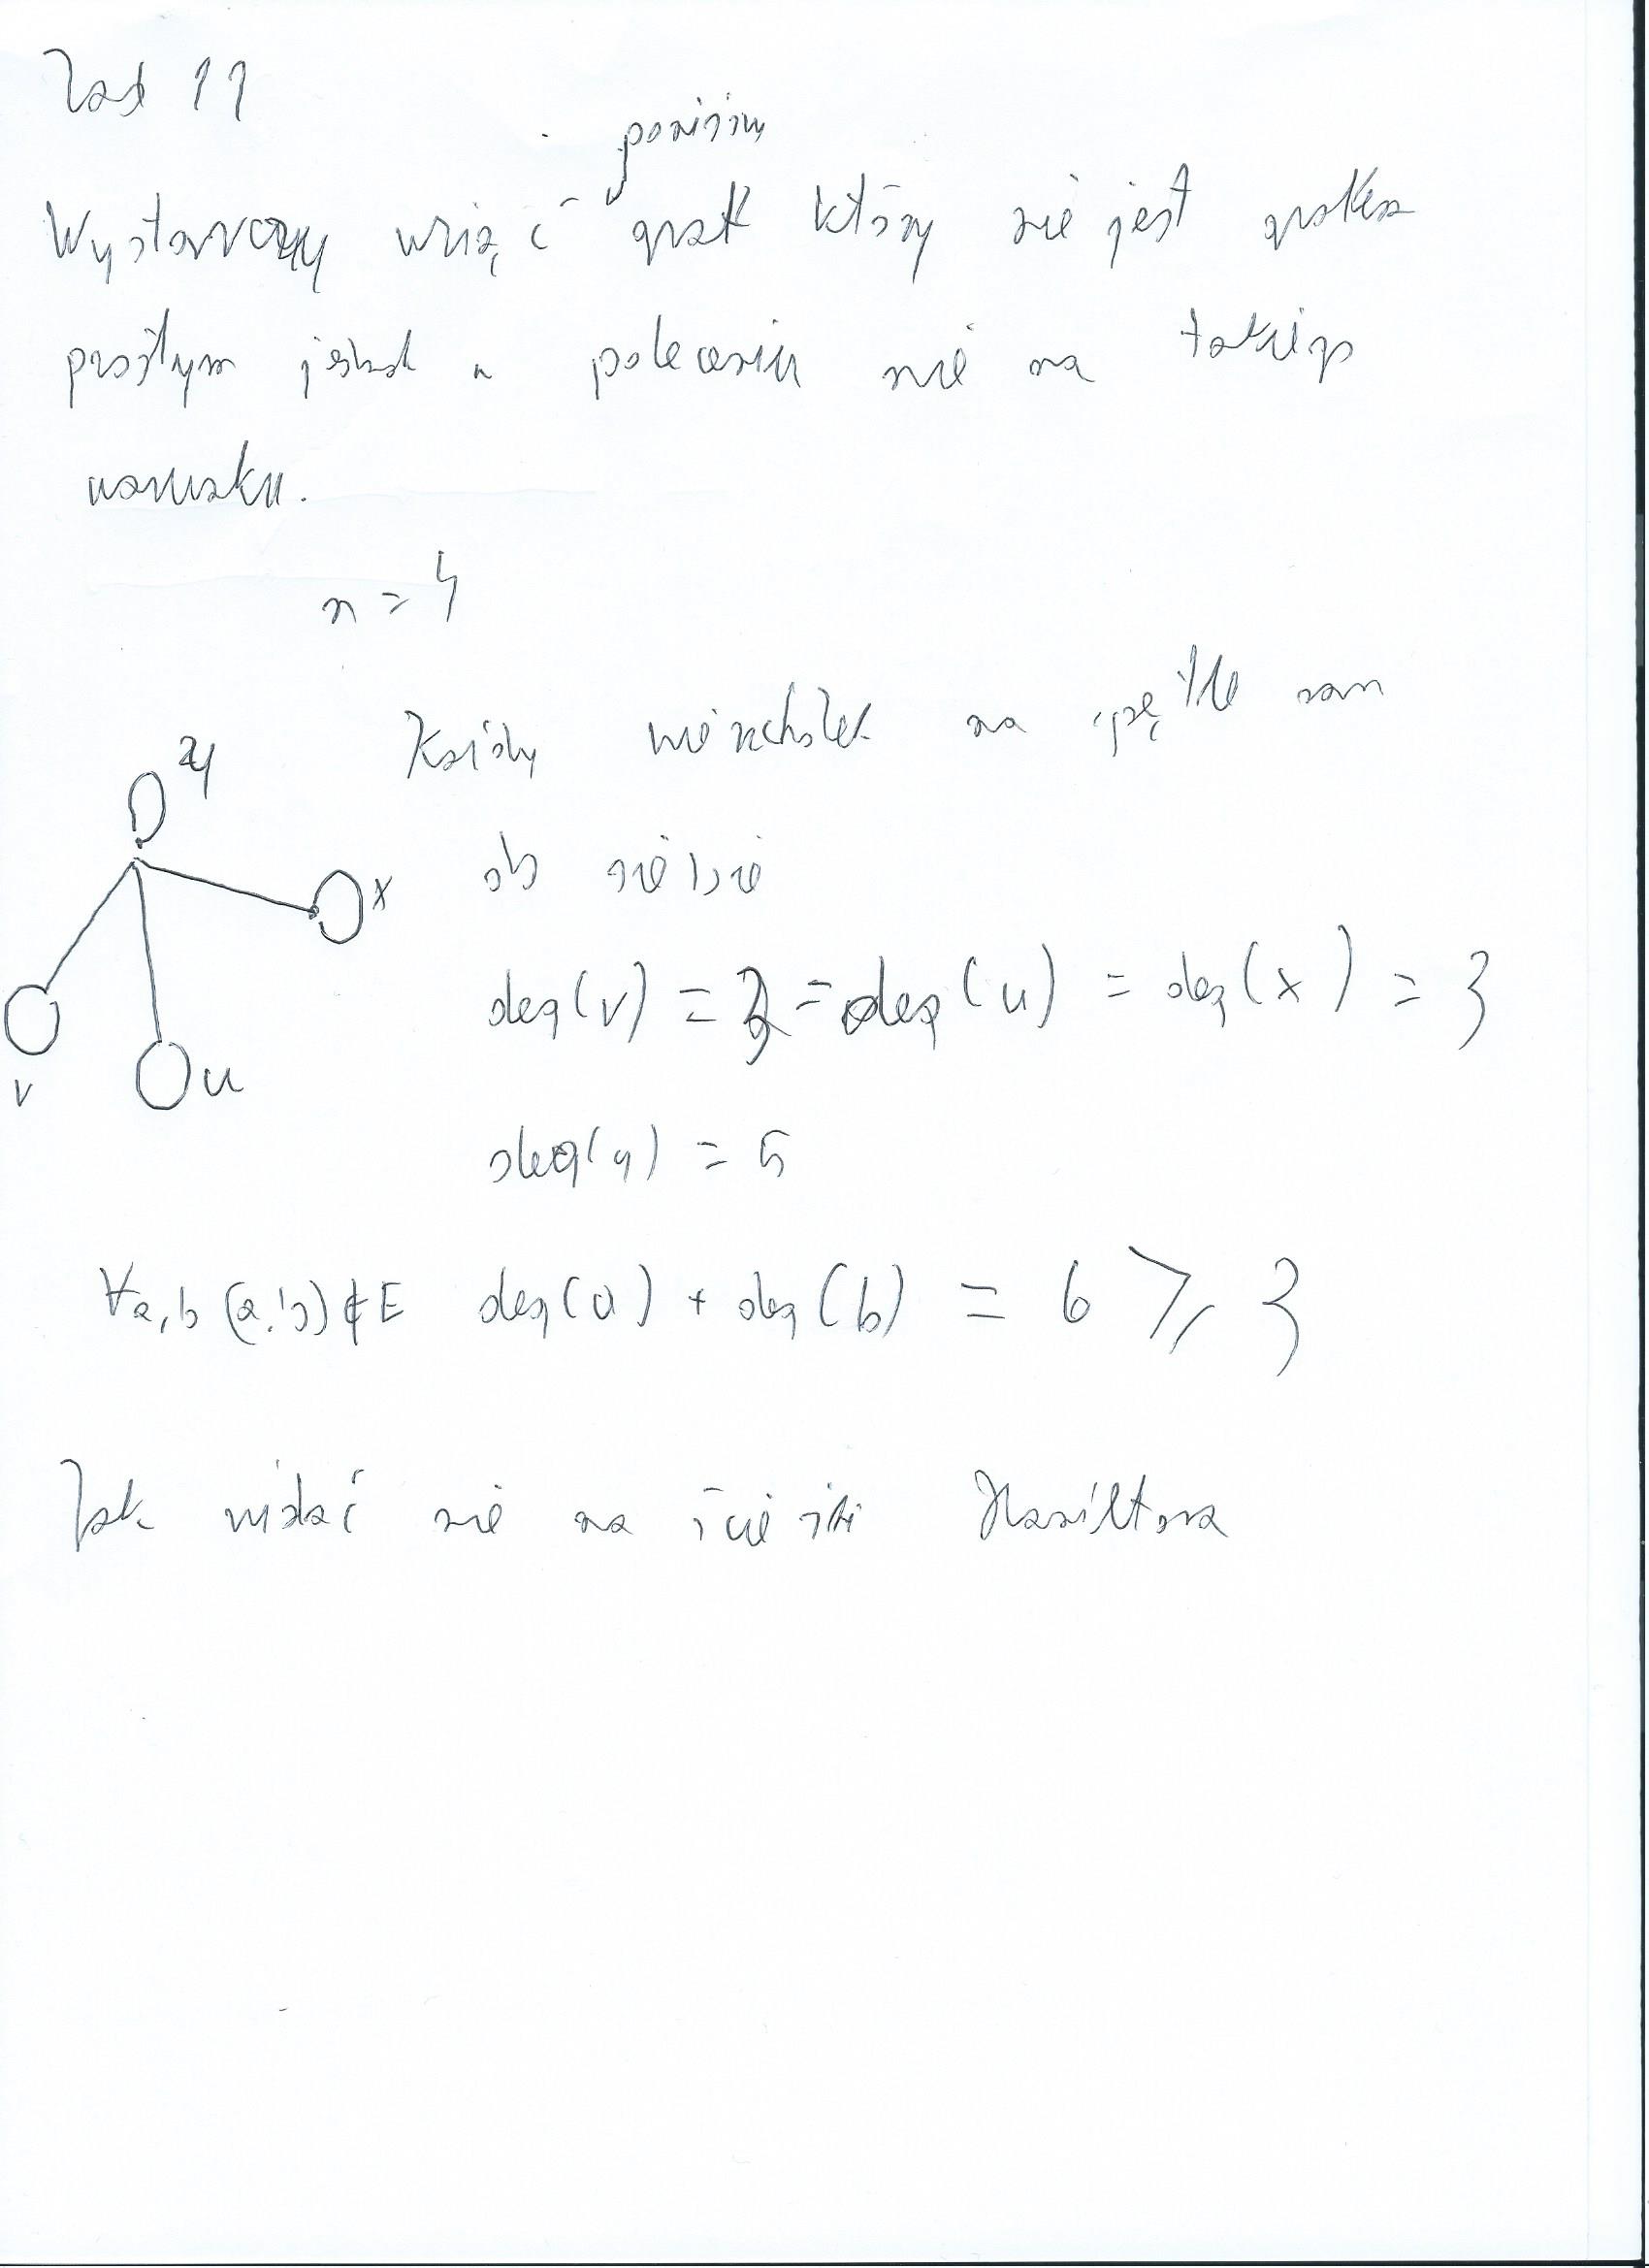 Zad 11
poniższy
Wystarczy wziąć graf który nie jest grafem
prostym jednak w poleceniu nie ma takiego
warunku.
n = 4
Każdy wierzchołek ma pętle sam
do siebie
y
x
v
u
deg(v) = 3 = deg(u) = deg(x) = 3
deg(y) = 5
∀a,b (a,b) ∉ E deg(a) + deg(b) = 6 ⩾ 3
Jak widać nie ma ścieżki Hamiltona